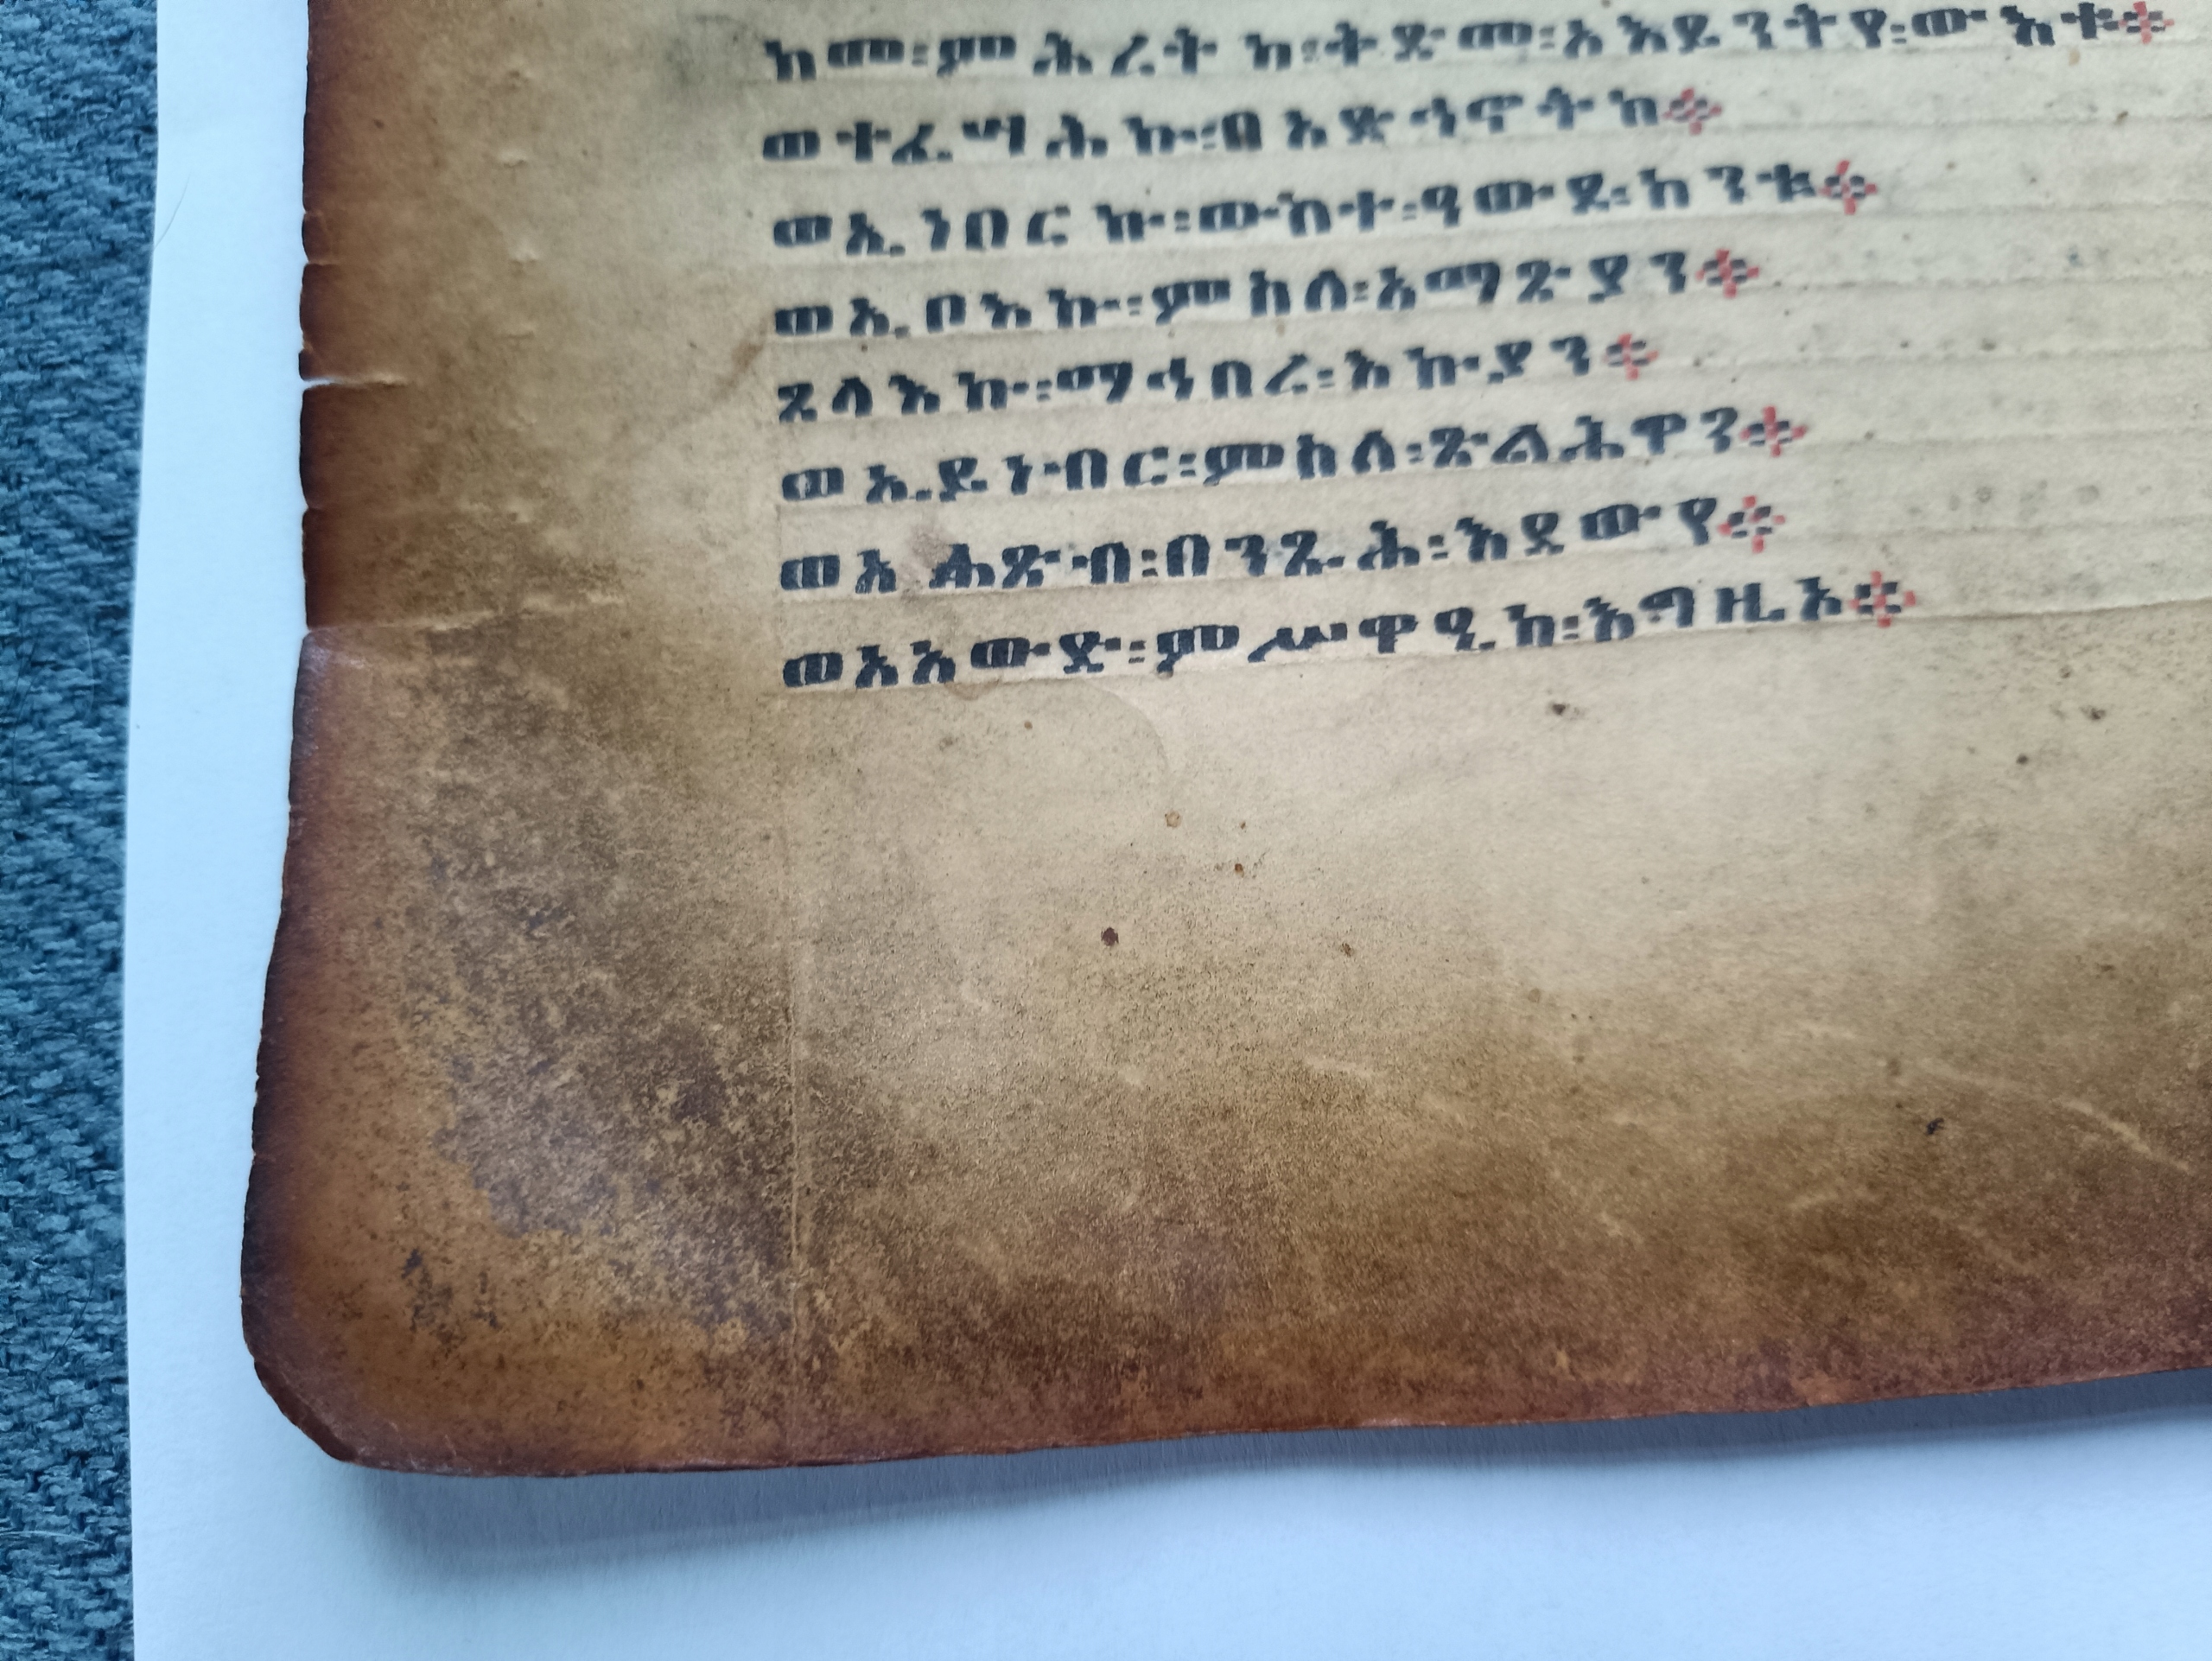 ከመ፡ምሕረትከ፡ቅድመ፡አእይንትየ፡ውእቱ፨
ወተፈሣሕኩ፡በአድኅኖትከ፨
ወኢነበርኩ፡ውስተ፡ዓውደ፡ከንቱ፨
ወኢቦእኩ፡ምስለ፡አማፅያን፨
ጸላእኩ፡ማኅበረ፡እኩያን፨
ወኢይነብር፡ምስለ፡ጽልሕዋን፨
ወእሐፅብ፡በንጹሕ፡እደውየ፨
ወአአውድ፡ምሥዋዒከ፡እግዚኦ፨